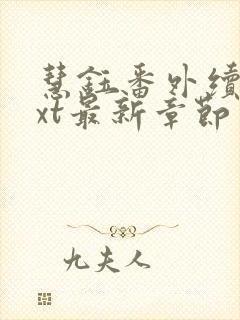 慧鈺番外續
xt最新章節
九夫人